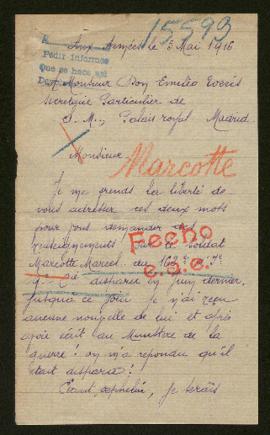 15593
Aux Armées le 5 Mai 1916
A
Pedir informes
Que se hace así
A Monsieur Don Emilio
Secretaire Particulier de
S. M., Palais royal Madrid
Monsieur
Marcotte
Je me prends la liberté de
vous adresser ces deux mots
pour vous demander de
renseignements sur le soldat
Fecho
c.s.e.
Marcotte Marcel du 162e
Cie disparu en Juin dernier,
jusqu'à ce jour je n'ai reçu
aucune nouvelle de lui et après
avoir écrit au Ministre de la
guerre on m'a repondu qu'il
était disparu!
je serais